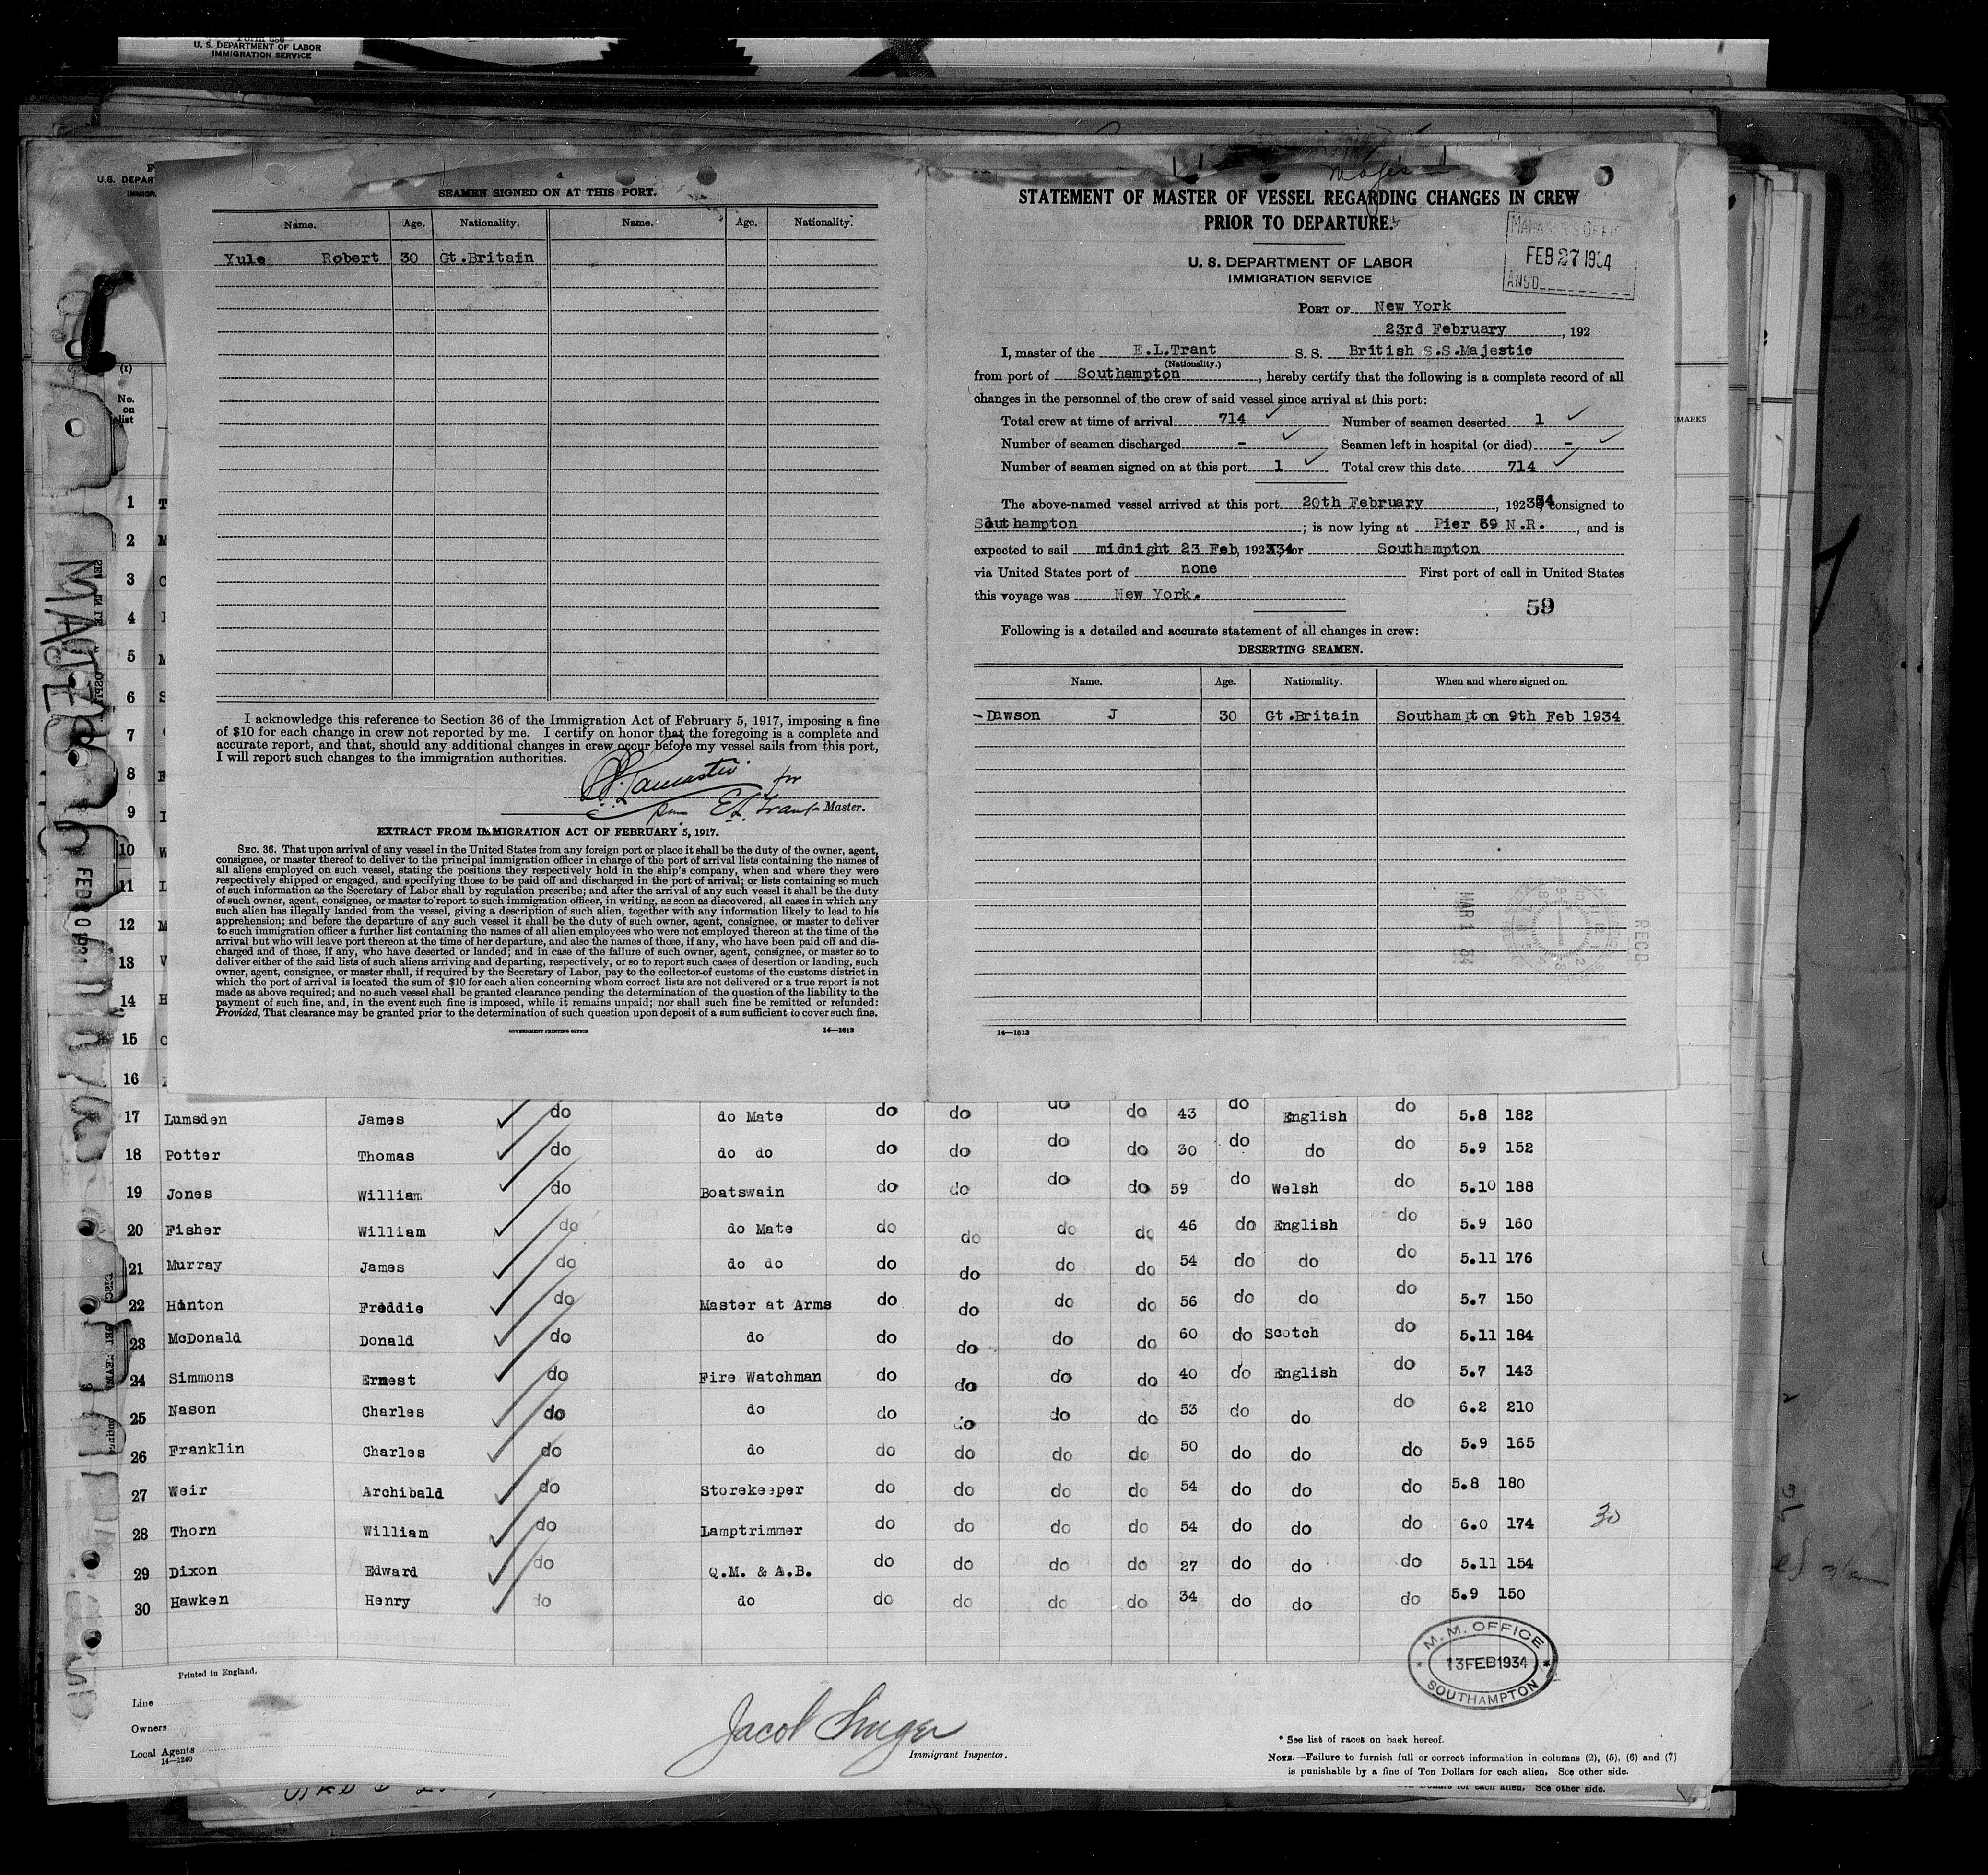 Form 680
U. S. DEPARTMENT OF LABOR
IMMIGRATION SERVICE
U.S. DEPAR
IMMIGR
SEAMEN SIGNED ON AT THIS PORT.
Name. Age. Nationality. Name. Age. Nationality.
Yule Robert 30 Gt.Britain
I acknowledge this reference to Section 36 of the Immigration Act of February 5, 1917, imposing a fine
of $10 for each change in crew not reported by me. I certify on honor that the foregoing is a complete and
accurate report, and that, should any additional changes in crew occur before my vessel sails from this port,
I will report such changes to the immigration authorities.
for
E.L. Trant Master.
EXTRACT FROM IMMIGRATION ACT OF FEBRUARY 5, 1917.
SEC. 36. That upon arrival of any vessel in the United States from any foreign port or place it shall be the duty of the owner, agent,
consignee, or master thereof to deliver to the principal immigration officer in charge of the port of arrival lists containing the names of
all aliens employed on such vessel, stating the positions they respectively hold in the ship's company, when and where they were
respectively shipped or engaged, and specifying those to be paid off and discharged in the port of arrival; or lists containing so much
of such information as the Secretary of Labor shall by regulation prescribe; and after the arrival of any such vessel it shall be the duty
of such owner, agent, consignee, or master to report to such immigration officer, in writing, as soon as discovered, all cases in which any
such alien has illegally landed from the vessel, giving a description of such alien, together with any information likely to lead to his
apprehension; and before the departure of any such vessel it shall be the duty of such owner, agent, consignee, or master to deliver
to such immigration officer a further list containing the names of all alien employees who were not employed thereon at the time of the
arrival but who will leave port thereon at the time of her departure, and also the names of those, if any, who have been paid off and dis-
charged and of those, if any, who have deserted or landed; and in case of the failure of such owner, agent, consignee, or master so to
deliver either of the said lists of such aliens arriving and departing, respectively, or so to report such cases of desertion or landing, such
owner, agent, consignee, or master shall, if required by the Secretary of Labor, pay to the collector of customs of the customs district in
which the port of arrival is located the sum of $10 for each alien concerning whom correct lists are not delivered or a true report is not
made as above required; and no such vessel shall be granted clearance pending the determination of the question of the liability to the
payment of such fine, and, in the event such fine is imposed, while it remains unpaid; nor shall such fine be remitted or refunded:
Provided, That clearance may be granted prior to the determination of such question upon deposit of a sum sufficient to cover such fine.
GOVERNMENT PRINTING OFFICE 14—1613
STATEMENT OF MASTER OF VESSEL REGARDING CHANGES IN CREW
PRIOR TO DEPARTURE.
FEB 27 1934
ANS'D
U. S. DEPARTMENT OF LABOR
IMMIGRATION SERVICE
PORT OF New York
23rd February, 192
I, master of the E.L.Trant S. S. British S.S.Majestic
(Nationality.)
from port of Southampton, hereby certify that the following is a complete record of all
changes in the personnel of the crew of said vessel since arrival at this port:
Total crew at time of arrival 714 Number of seamen deserted 1
Number of seamen discharged - Seamen left in hospital (or died) -
Number of seamen signed on at this port 1 Total crew this date 714
The above-named vessel arrived at this port 20th February, 19234, consigned to
Southampton; is now lying at Pier 59 N.R., and is
expected to sail midnight 23 Feb, 19234 for Southampton
via United States port of none First port of call in United States
this voyage was New York.
59
Following is a detailed and accurate statement of all changes in crew:
DESERTING SEAMEN.
Name. Age. Nationality. When and where signed on.
-Dawson J 30 Gt.Britain Southampton 9th Feb 1934
RECD
MAR 1
14—1613
(1)
No.
on
list
MARKS
MAJESTIC
FEB 20 1934
1 T
2 M
3 C
4
5 M
6 S
7
8
9
10 W
11 L
12 M
13
14 H
15 C
16
17 Lumsden James do do Mate do do do do 43 do English do 5.8 182
18 Potter Thomas do do do do do do do 30 do do do 5.9 152
19 Jones William do Boatswain do do do do 59 do Welsh do 5.10 188
20 Fisher William do do Mate do do do do 46 do English do 5.9 160
21 Murray James do do do do do do do 54 do do do 5.11 176
22 Hinton Freddie do Master at Arms do do do do 56 do do do 5.7 150
23 McDonald Donald do do do do do do 60 do Scotch do 5.11 184
24 Simmons Ernest do Fire Watchman do do do do 40 do English do 5.7 143
25 Nason Charles do do do do do do 53 do do do 6.2 210
26 Franklin Charles do do do do do do 50 do do do 5.9 165
27 Weir Archibald do Storekeeper do do do do 54 do do do 5.8 180
28 Thorn William do Lamptrimmer do do do do 54 do do do 6.0 174 30
29 Dixon Edward do Q.M. & A.B. do do do do 27 do do do 5.11 154
30 Hawken Henry do do do do do do 34 do do do 5.9 150
M. M. OFFICE
13 FEB 1934
SOUTHAMPTON
Printed in England.
Line
Owners
Local Agents
14—1240
Immigrant Inspector.
* See list of races on back hereof.
NOTE.—Failure to furnish full or correct information in columns (2), (5), (6) and (7)
is punishable by a fine of Ten Dollars for each alien. See other side.
for each alien. See other side.